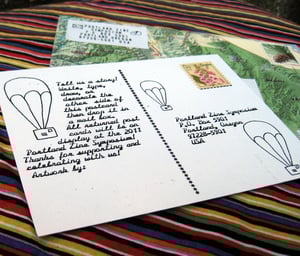 Tell us a story!
Write, type,
draw, or
decorate the
other side of
this postcard
then drop it in
a mail box.
All returned post
cards will be on
display at the 2011
Portland Zine Symposium!
Thanks for supporting and
celebrating with us!
Artwork by:
Portland Zine Symposium
P.O. Box 5901
Portland, Oregon
97228-5901
USA